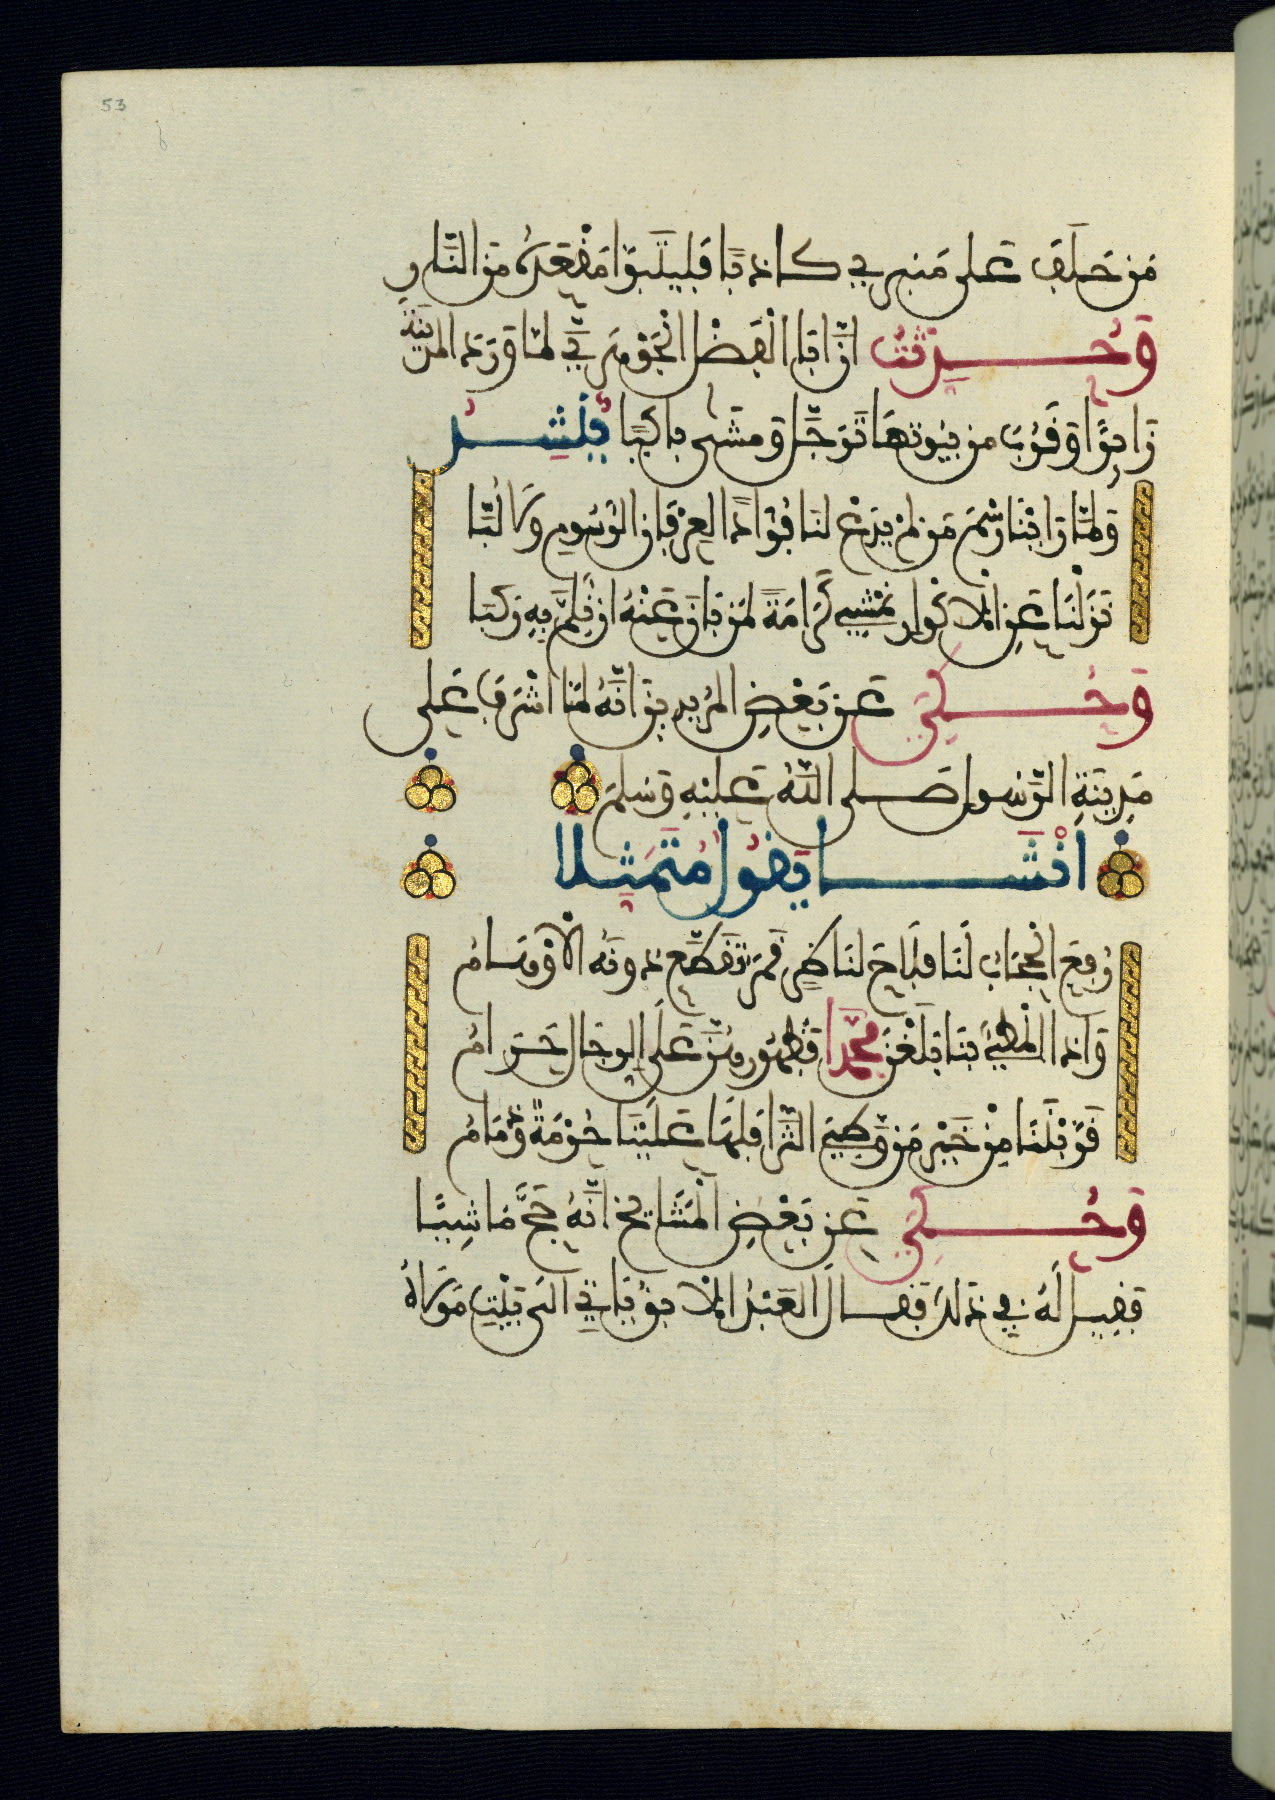 53
مَن حَلَفَ عَلى مَنبري كاذبًا فليتبوّأ مقعده من النار
وَحُدِّثْتُ أنّ أبا الفضل الجوهري لمّا ورد المدينة
زائرًا وقرب من بيوتها ترجّل ومشى باكيًا يُنشد
ولمّا رأينا رسم من لم يدع لنا فؤادًا لعرفان الرسوم ولا لُبّا
نزلنا عن الأكوار نمشي كرامةً لمن بان عنه أن نلمّ به ركبا
وَحُكِيَ عن بعض المريدين أنّه لمّا أشرف على
مدينة الرّسول صلى الله عليه وسلم
أنشأ يقول متمثلا
رُفِعَ الحجاب لنا فلاح لناظر قمر تقطّع دونه الأوهام
وإذا المطيّ بنا بلغن محمدا فظهورهنّ على الرجال حرام
قرّبننا من خير من وطئ الثرا فلها علينا حرمة وذمام
وَحُكِيَ عن بعض المشايخ أنّه حجّ ماشيًا
فقيل له في ذلك فقال العبد الأبق يأتي الى بيت مولاه